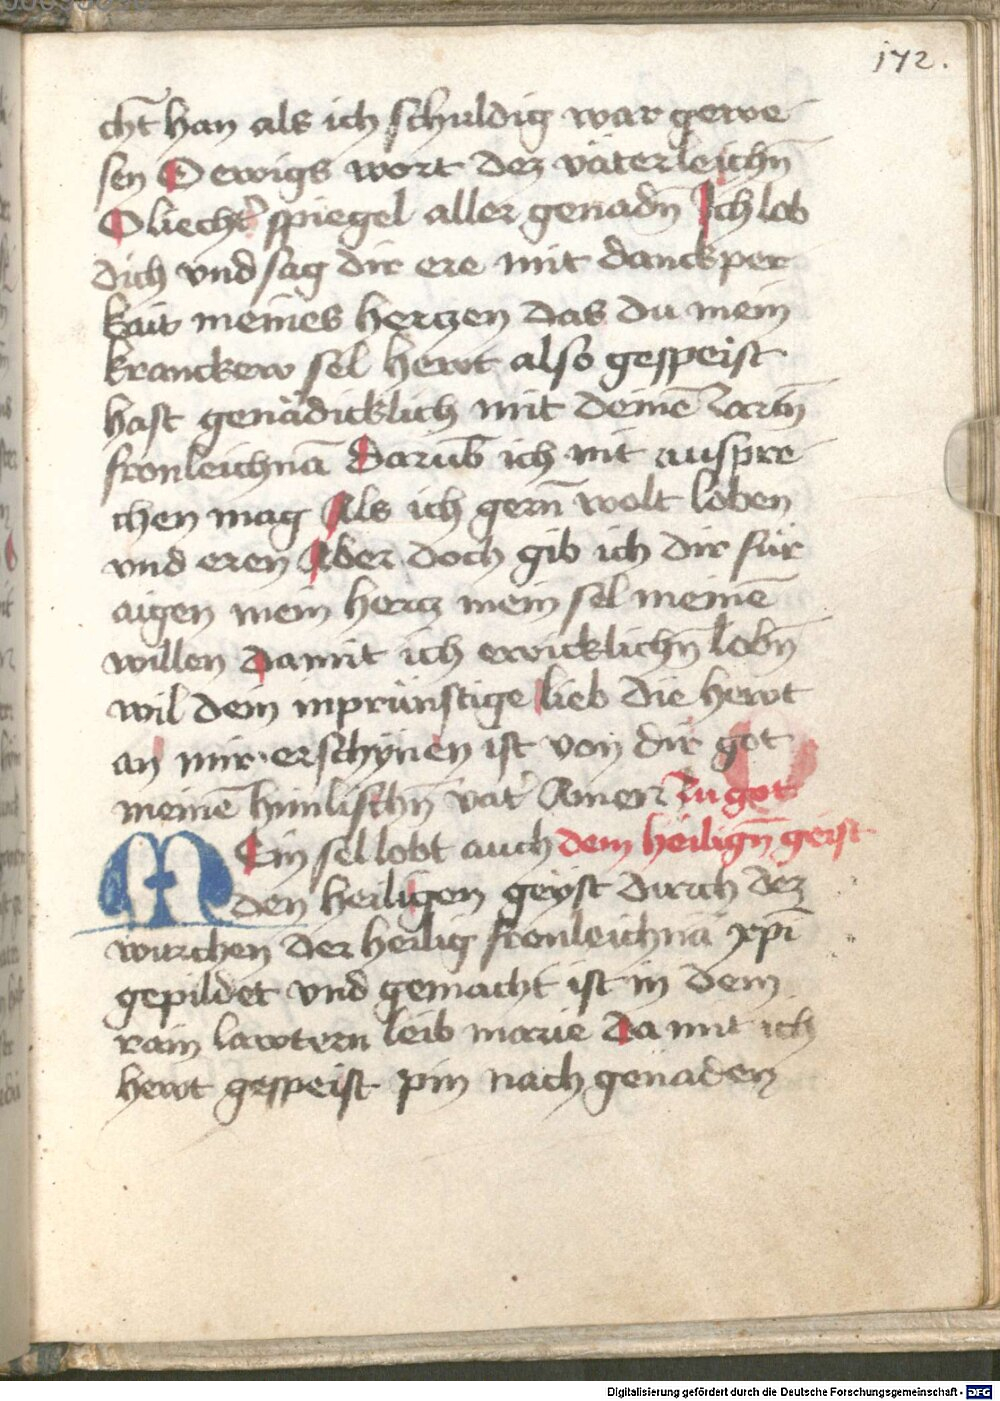 172.
cht han als ich schuldig war gewe
sen O ewigs wort dez väterleichn̄
O liecht' spiegel aller genadn̄ Ich lob
dich vnd sag dir ere mit danckper
kait meines hertzen das du mein
kranckew sel hewt also gespeist
hast genädicklich mit deinē zartn̄
fronleichnā Darūb ich nit ausspre
chen mag Als ich gern̄ wolt loben
vnd eren Aber doch gib ich dir für
aigen mein hertz mein sel meinē
willen damit ich ewicklichn̄ lobn̄
wil dein inprünstige lieb die hewt
an mir erschynen ist von dir got
meinē himlischn̄ vat' Amen Zu got
MEin sel lobt auch dem heilign̄ geist
den heiligen geyst durch dez
würchen der heilig fronleichnā xp̄i
gepildet vnd gemacht ist in dem
rain lawtern leib marie da mit ich
hewt gespeist pin nach genaden
Digitalisierung gefördert durch die Deutsche Forschungsgemeinschaft - DFG